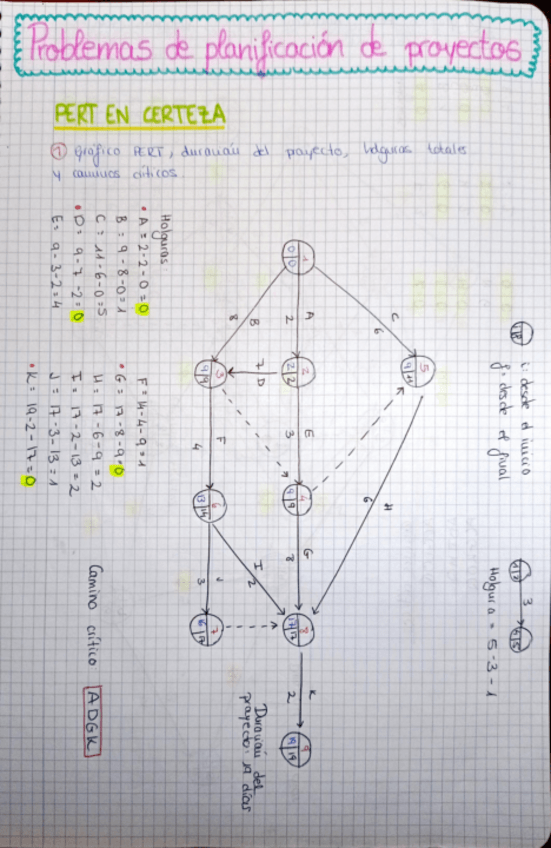 Problemas de planificación de proyectos
PERT EN CERTEZA
① gráfico PERT, duración del proyecto, holguras totales
y caminos críticos.
i: desde el inicio
f: desde el final
3
Holgura = 5-3-1
1
0 0
C
6
A
2
B
8
5
9 11
2
2 2
7
D
3
9 9
E
3
F
4
H
6
4
9 9
G
8
6
13 14
I
2
J
3
8
17 17
7
16 17
K
2
9
19 19
Duración del
proyecto: 19 días
Holguras
• A = 2-2-0=0
B = 9-8-0=1
C = 11-6-0=5
• D = 9-7-2=0
E = 9-3-2=4
F = 14-4-9=1
• G = 17-8-9=0
H = 17-6-9=2
I = 17-2-13=2
J = 17-3-13=1
• K = 19-2-17=0
Camino crítico ADGK